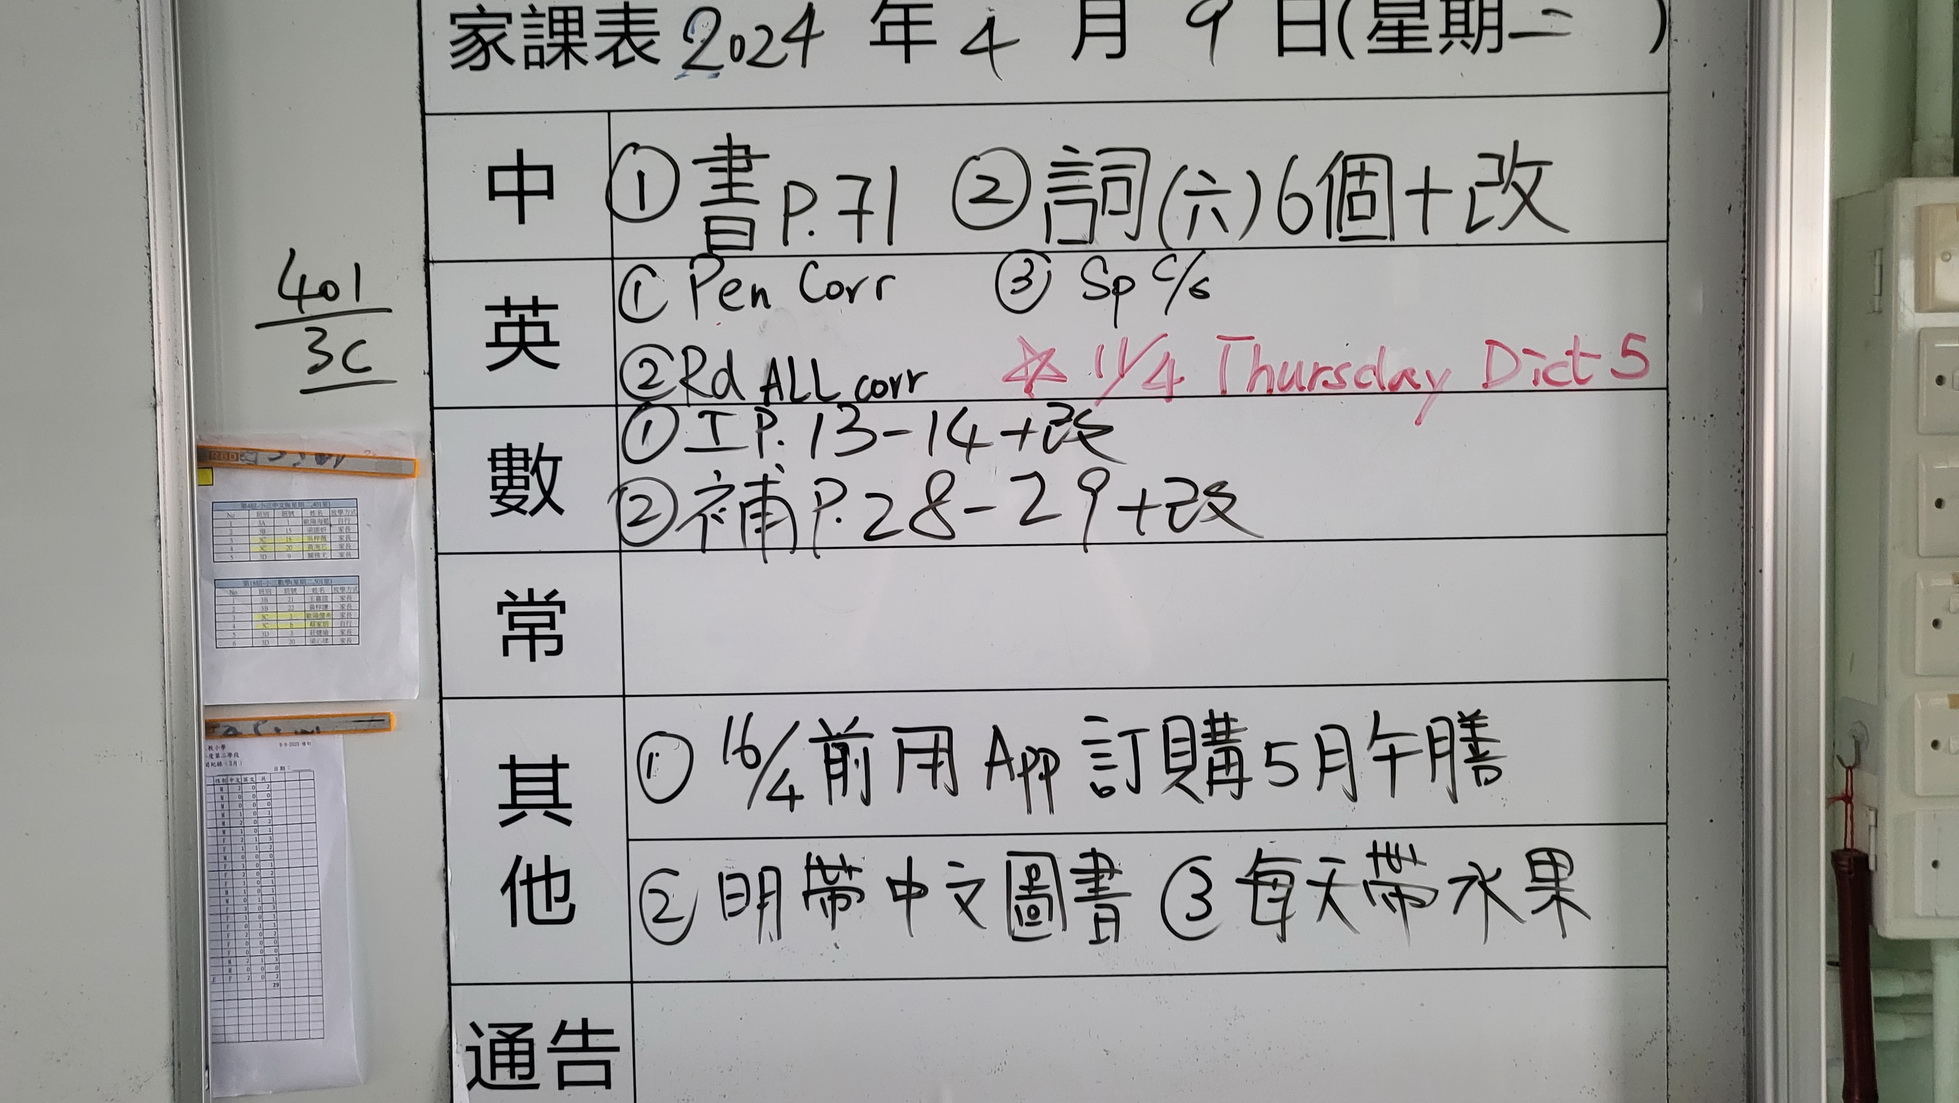 家課表 2024 年 4 月 9 日(星期二 )
中
①書P.71 ②詞(六)6個+改
401
3C
英
①Pen Corr ③ Sp c/s
②Rd ALL corr ☆ 11/4 Thursday Dict 5
數
①工P.13-14+改
②補P.28-29+改
常
其他
① 16/4前用App訂購5月午膳
②明帶中文圖書 ③每天帶水果
通告